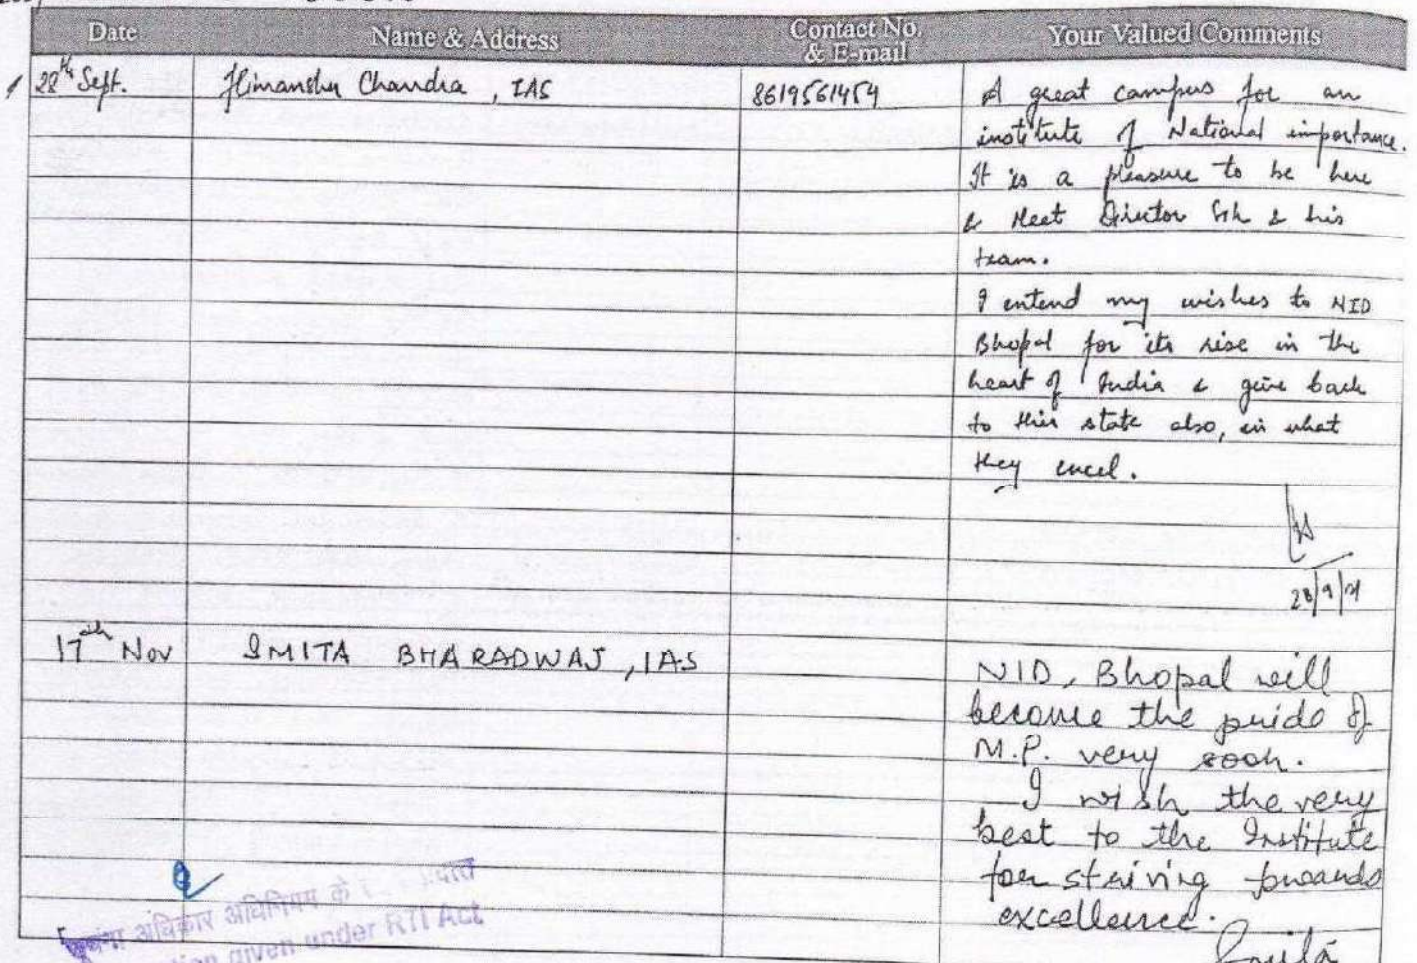 Date Name & Address Contact No. & E-mail Your Valued Comments
28th Sept. Himanshu Chandra, IAS 8619561454 A great campus for an
institute of National importance.
It is a pleasure to be here
& Meet Director Sir & his
team.
I entend my wishes to NID
Bhopal for its rise in the
heart of India & give back
to this state also, in what
they excel.
28/9/21
17th Nov SMITA BHARADWAJ, IAS
NID, Bhopal will
become the pride of
M.P. very soon.
I wish the very
best to the Institute
for striving towards
excellence.
Smita
अधिकार अधिनियम के
given under RTI Act